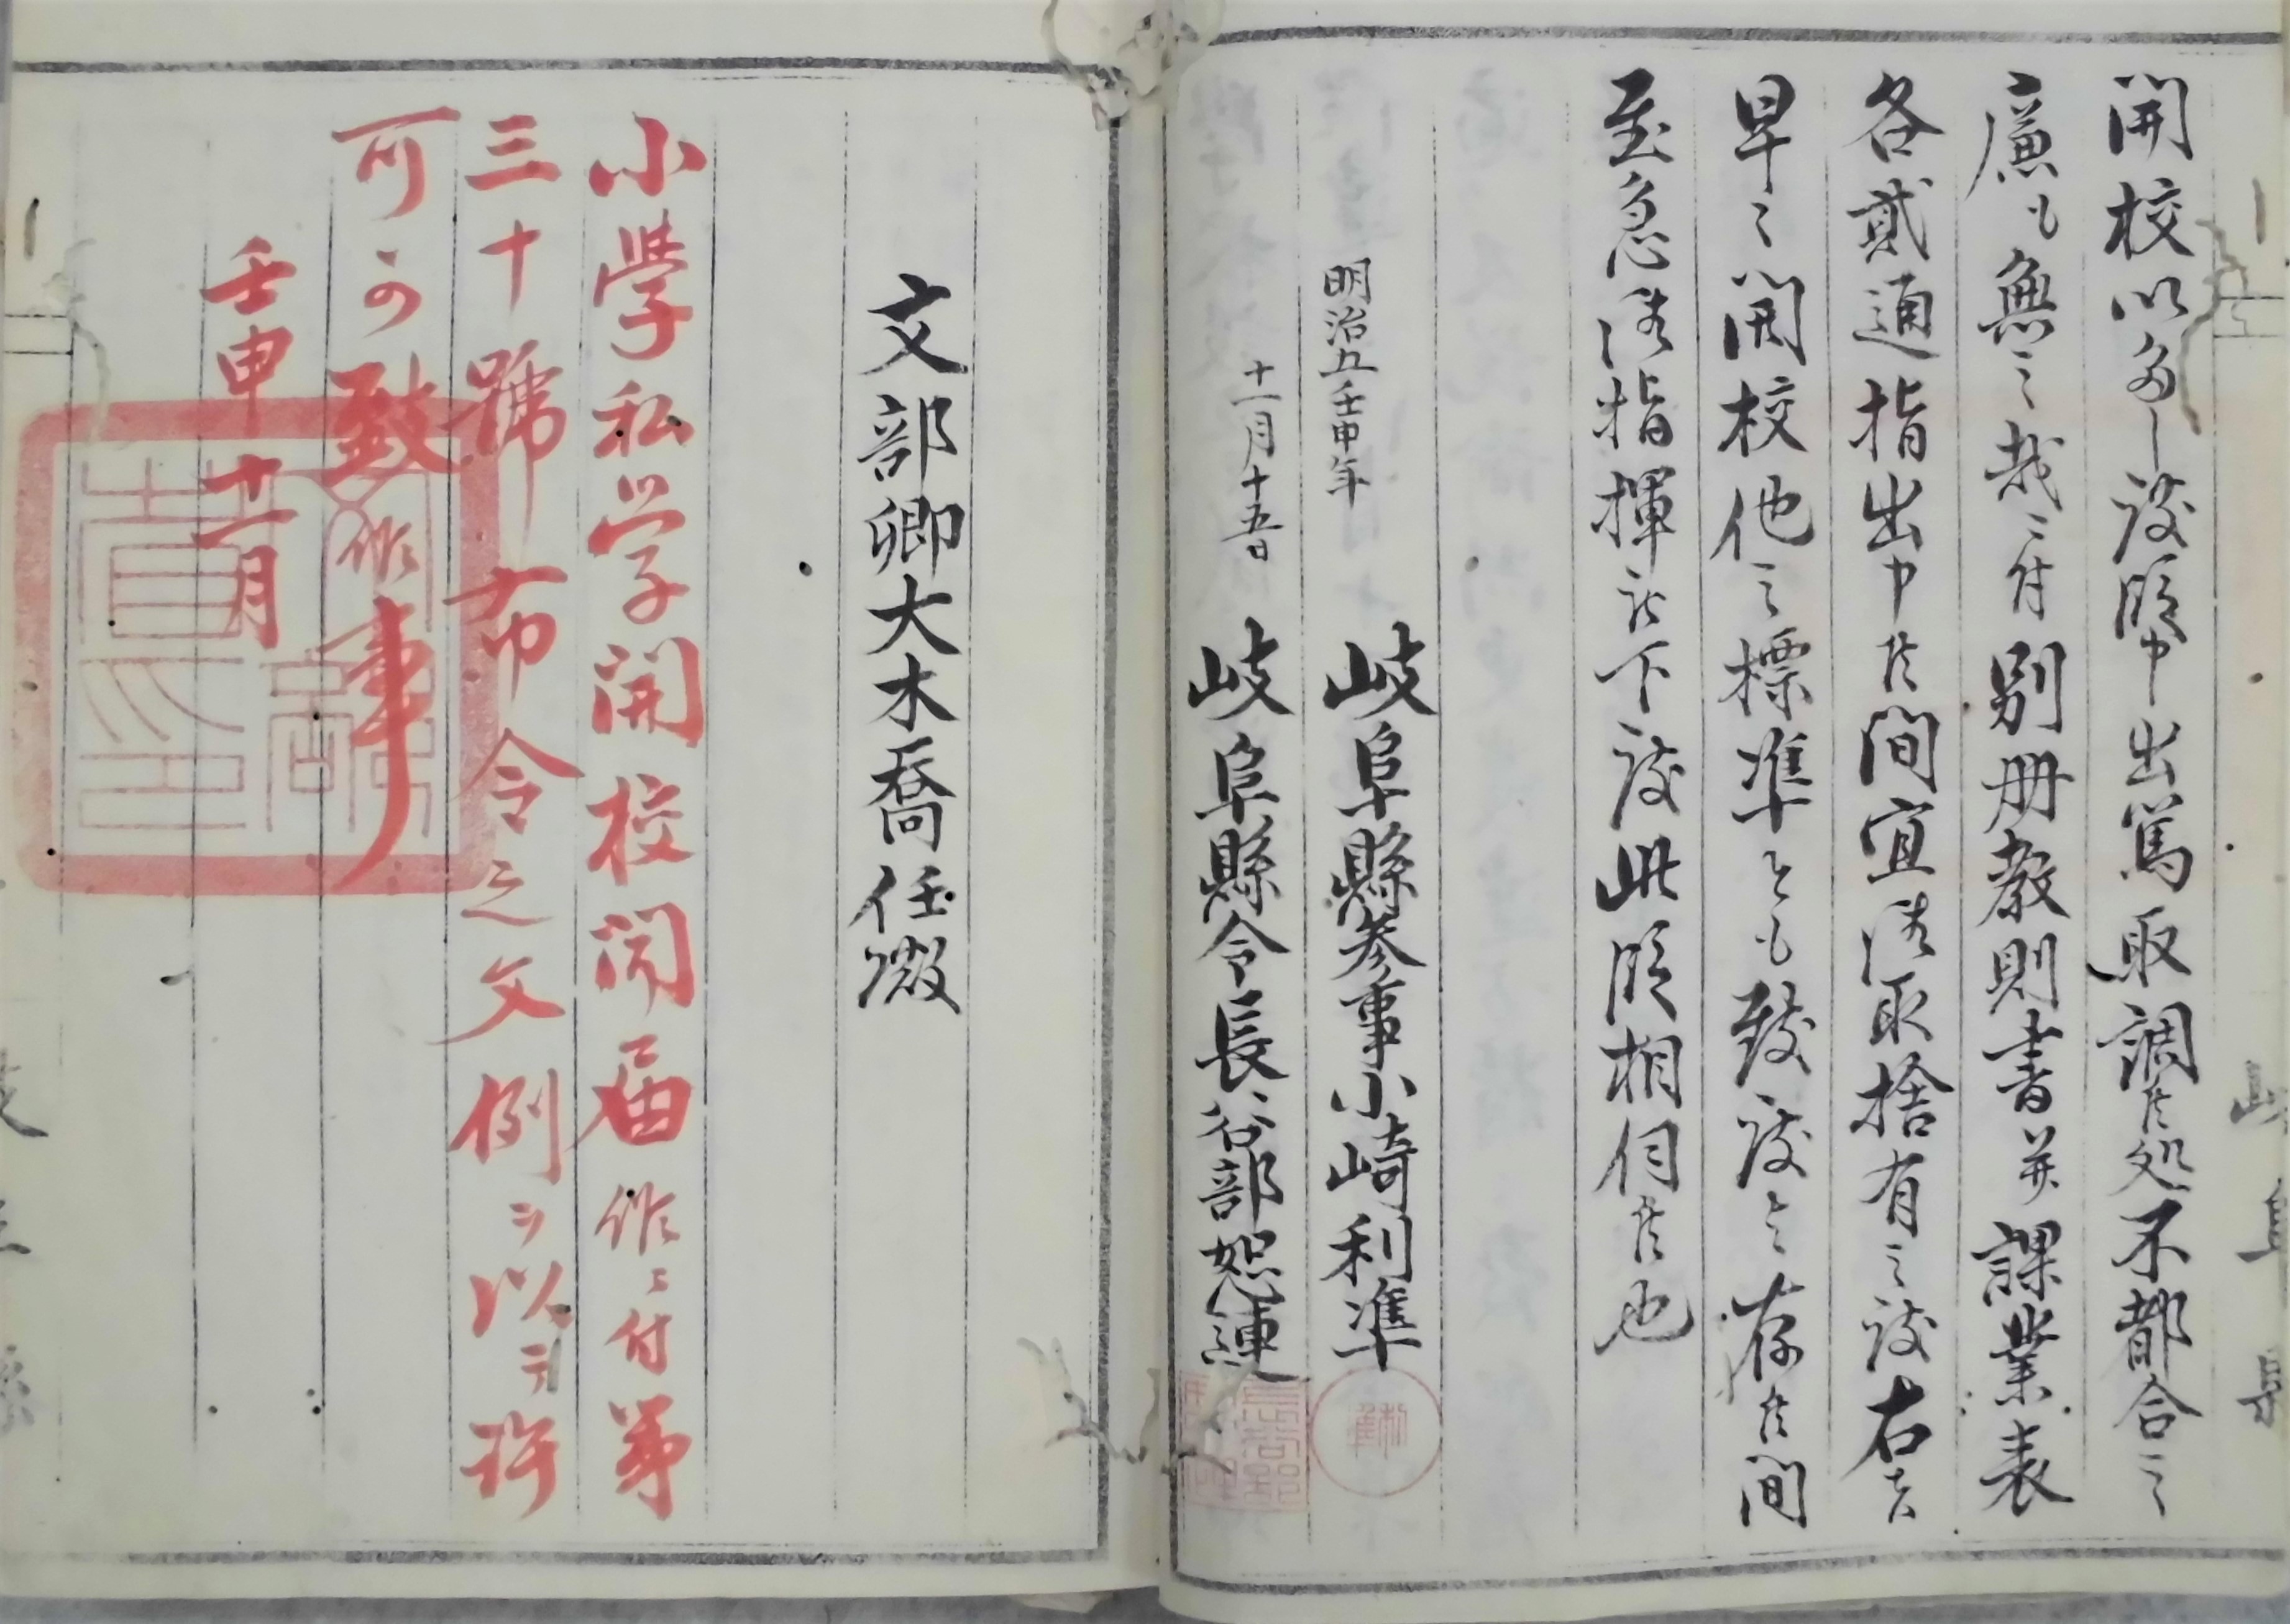 開校以多し度段申出篤取調候処不都合之
廉も無之哉ニ付別册教則書并課業表
各貳通指出申候間宜御取捨有之度右者
早々開校他之標準とも致度と存候間
至急御指揮被下度此段相伺候也
明治五壬申年
岐阜縣参事小崎利準
十一月十五日
岐阜縣令長谷部恕連
文部卿大木喬任殿
小學私学開校開届候ニ付第
三十號布令之文例ヲ以テ許
可可致候事
壬申十一月